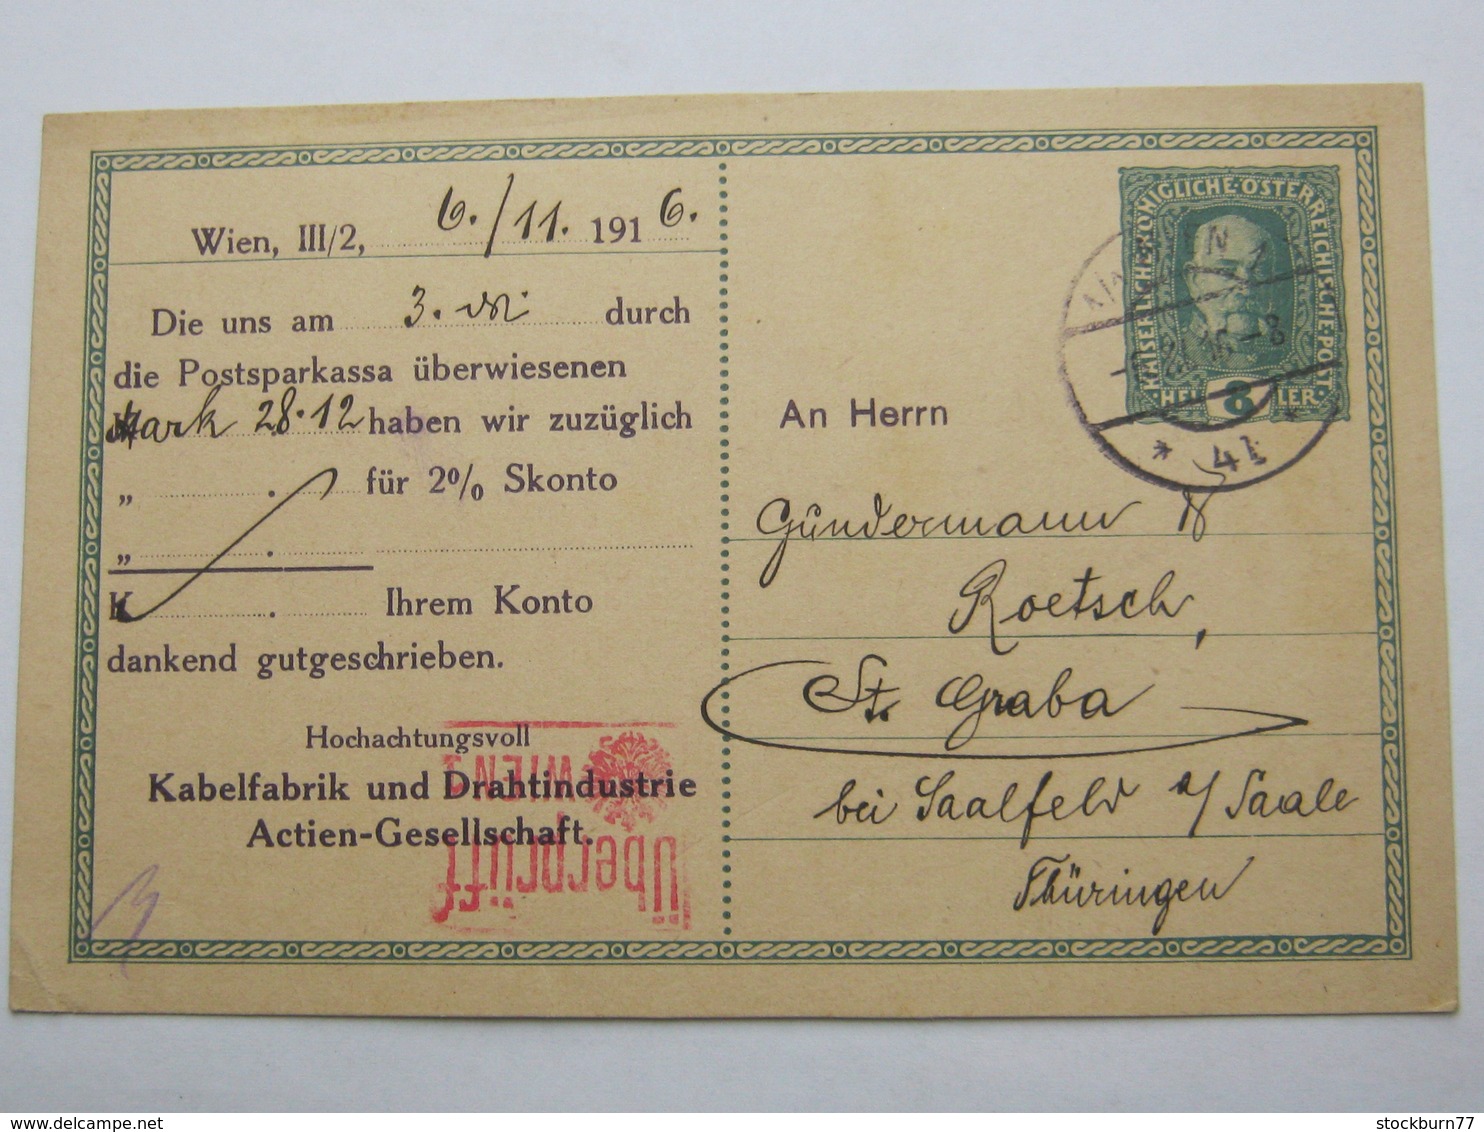 Wien, III/2, 6./11. 1916.
Die uns am 3. durch
die Postsparkassa überwiesenen
Mark 28.12 haben wir zuzüglich
„ . für 2% Skonto
„ .
K . Ihrem Konto
dankend gutgeschrieben.
Hochachtungsvoll
Kabelfabrik und Drahtindustrie
Actien-Gesellschaft.
WIEN 1
Überprüft
KAISERLICHE·KÖNIGLICHE·ÖSTERREICHISCHE·POST
HELLER
8
WIEN
16-8
* 41
An Herrn
Gundermann &
Roetsch,
St. Graba
bei Saalfeld a/Saale
Thüringen
stockburn77